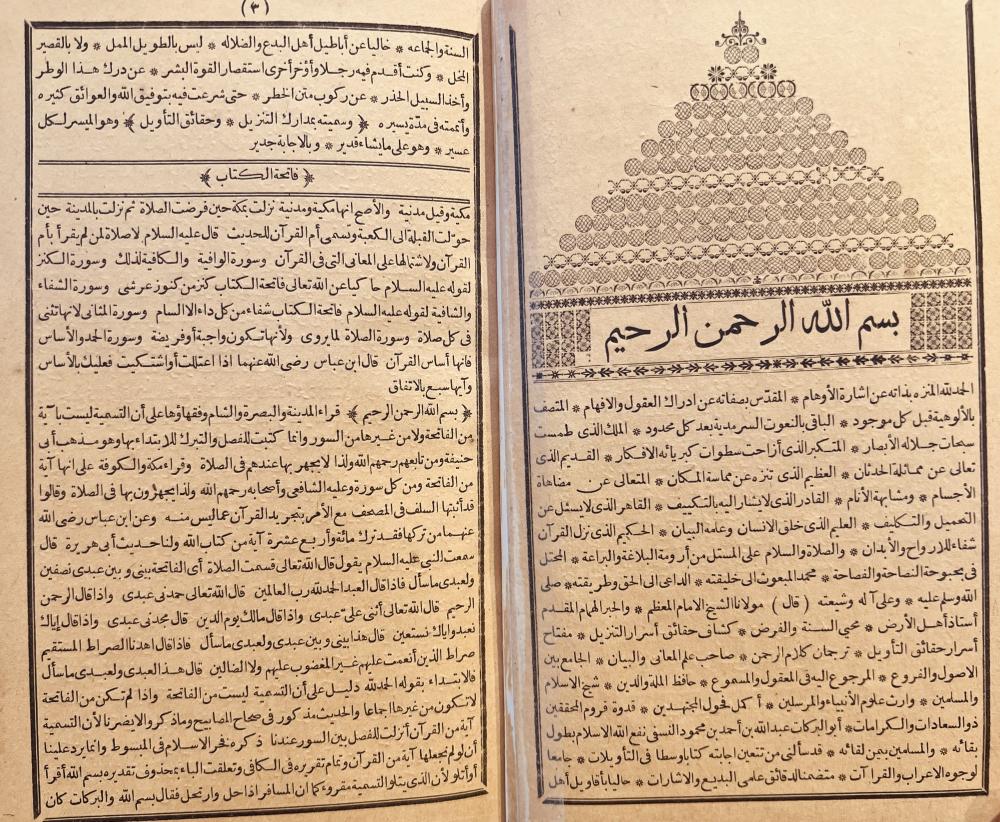 بسم الله الرحمن الرحيم
الحمد لله المنزه بذاته عن اشارة الأوهام * المقدّس بصفاته عن ادراك العقول والافهام * المتصف
بالألوهية قبل كل موجود * الباقى بالنعوت السرمدية بعد كل محدود * الملك الذى طمست
سبحات جلاله الأبصار * المتكبر الذى أزاحت سطوات كبريائه الافكار * القديم الذى
تعالى عن مماثلة الحدثان * العظيم الذى تنزه عن مماسة المكان * المتعالى عن مضاهاة
الأجسام * ومشابهة الأنام * القادر الذى لا يشار اليه بالتكييف * القاهر الذى لا يسئل عن
التحميل والتكليف * العليم الذى خلق الانسان وعلمه البيان * الحكيم الذى نزل القرآن
شفاء للارواح والأبدان * والصلاة والسلام على المستل من أرومة البلاغة والبراعة * المحتل
فى بحبوحة النصاحة والفصاحة * محمد المبعوث الى خليقته * الداعى الى الحق وطريقته * صلى
الله وسلم عليه * وعلى آله وشيعته (قال) مولانا الشيخ الامام المعظم * والحبر الهمام المقدم
أستاذ أهل الأرض * محيى السنة والفرض * كشاف حقائق أسرار التنزيل * مفتاح
أسرار حقائق التأويل * ترجمان كلام الرحمن * صاحب علم المعانى والبيان * الجامع بين
الاصول والفروع * المرجوع اليه فى المعقول والمسموع * حافظ الملة والدين * شيخ الاسلام
والمسلمين * وارث علوم الأنبياء والمرسلين * أكمل فحول المجتهدين * قدوة قروم المحققين
ذو السعادات والكرامات * أبو البركات عبد الله بن أحمد بن محمود النسفى نفع الله الاسلام بطول
بقائه * والمسلمين بيمن لقائه * قد سألنى من تتعين اجابته كتابا وسطا فى التأويلات * جامعا
لوجوه الاعراب والقرا آت * متضمنا لدقائق علمى البديع والاشارات * حاليا بأقاويل أهل
(٣)
السنة والجماعه * خاليا عن أباطيل أهل البدع والضلاله * ليس بالطويل الممل * ولا بالقصير
المخل * وكنت أقدم فيه رجلا وأؤخر أخرى استقصار القوة البشر * عن درك هذا الوطر
وأخذ السبيل الحذر * عن ركوب متن الخطر * حتى شرعت فيه بتوفيق الله والعوائق كثيره
وأتممته فى مدّة يسيره ﴿ وسميته بمدارك التنزيل * وحقائق التأويل ﴾ وهو الميسر لكل
عسير * وهو على ما يشاء قدير * وبالاجابة جدير
﴿ فاتحة الكتاب ﴾
مكية وقيل مدنية والأصح انها مكية ومدنية نزلت بمكة حين فرضت الصلاة ثم نزلت بالمدينة حين
حوّلت القبلة الى الكعبة وتسمى أم القرآن للحديث قال عليه السلام لا صلاة لمن لم يقرأ بأم
القرآن ولاشتمالها على المعانى التى فى القرآن وسورة الوافية والكافية لذلك وسورة الكنز
لقوله عليه السلام حاكيا عن الله تعالى فاتحة الكتاب كنز من كنوز عرشى وسورة الشفاء
والشافية لقوله عليه السلام فاتحة الكتاب شفاء من كل داء الا السام وسورة المثانى لانها تثنى
فى كل صلاة وسورة الصلاة لما يروى ولانها تكون واجبة أو فريضة وسورة الحمد والأساس
فانها أساس القرآن قال ابن عباس رضى الله عنهما اذا اعتللت أو اشتكيت فعليك بالأساس
وآيها سبع بالاتفاق
﴿ بسم الله الرحمن الرحيم ﴾ قراء المدينة والبصرة والشام وفقهاؤها على أن التسمية ليست بآية
من الفاتحة ولا من غيرها من السور وانما كتبت للفصل والتبرك للابتداء بها وهو مذهب أبى
حنيفة ومن تابعهم رحمهم الله ولذا لا يجهر بها عندهم فى الصلاة وقراء مكة والكوفة على انها آية
من الفاتحة ومن كل سورة وعليه الشافعى وأصحابه رحمهم الله ولذا يجهرون بها فى الصلاة وقالوا
قد أثبتها السلف فى المصحف مع الأمر بتجريد القرآن عما ليس منه وعن ابن عباس رضى الله
عنهما من تركها فقد ترك مائة وأربع عشرة آية من كتاب الله ولنا حديث أبى هريرة قال
سمعت النبى عليه السلام يقول قال الله تعالى قسمت الصلاة أى الفاتحة بينى وبين عبدى نصفين
ولعبدى ما سأل فاذا قال العبد الحمد لله رب العالمين قال الله تعالى حمدنى عبدى واذا قال الرحمن
الرحيم قال الله تعالى أثنى علىّ عبدى واذا قال مالك يوم الدين قال مجدنى عبدى واذا قال إياك
نعبد واياك نستعين قال هذا بينى وبين عبدى ولعبدى ما سأل فاذا قال اهدنا الصراط المستقيم
صراط الذين أنعمت عليهم غير المغضوب عليهم ولا الضالين قال هذا لعبدى ولعبدى ما سأل
فالابتداء بقوله الحمد لله دليل على أن التسمية ليست من الفاتحة واذا لم تكن من الفاتحة
لا تكون من غيرها اجماعا والحديث مذكور فى صحاح المصابيح وما ذكروا لا يضرنا لأن التسمية
آية من القرآن أنزلت للفصل بين السور عندنا ذكره فخر الاسلام فى المبسوط وانما يرد علينا
أن لو لم نجعلها آية من القرآن وتمام تقريره فى الكافى وتعلقت الباء بمحذوف تقديره بسم الله أقرأ
أو أتلو لأن الذى يتلو التسمية مقروء كما ان المسافر اذا حل وارتحل فقال بسم الله والبركات كان